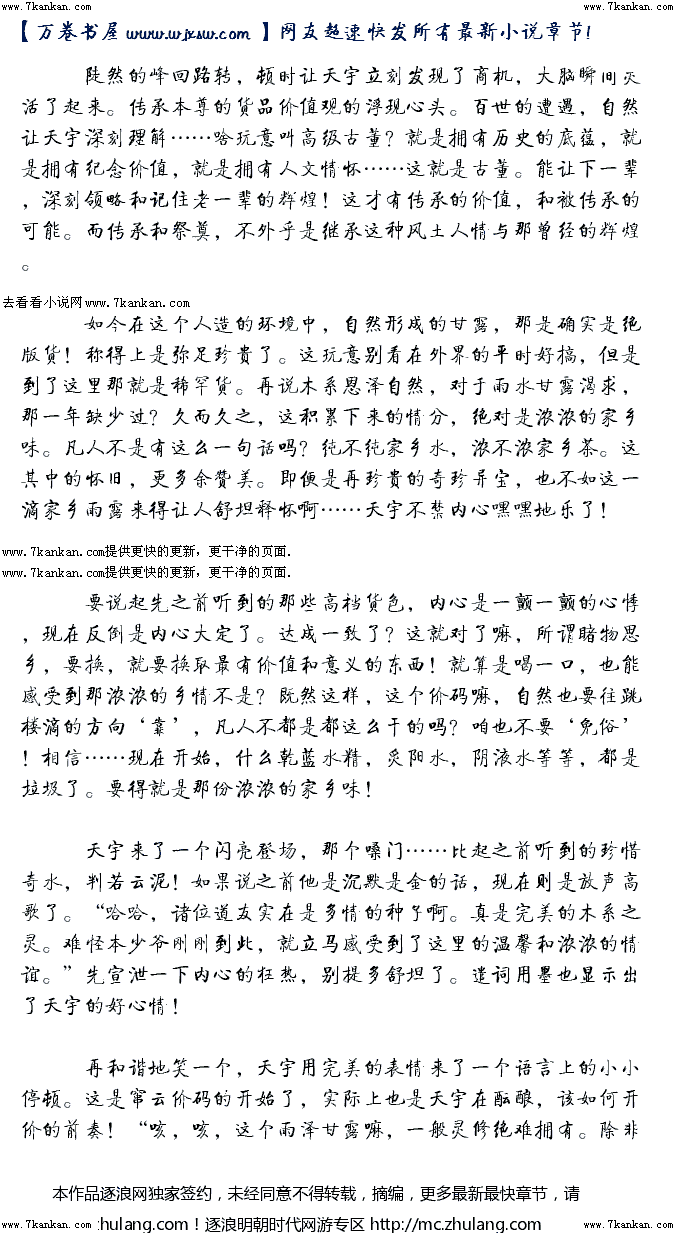 www.7kankan.com www.7kankan.com
【万卷书屋 www.wjxsw.com 】网友超速快发所有最新小说章节!
陡然的峰回路转，顿时让天宇立刻发现了商机，大脑瞬间灭
活了起来。传承本尊的货品价值观的浮现心头。百世的遭遇，自然
让天宇深刻理解……啥玩意叫高级古董？就是拥有历史的底蕴，就
是拥有纪念价值，就是拥有人文情怀……这就是古董。能让下一辈
，深刻领略和记住老一辈的辉煌！这才有传承的价值，和被传承的
可能。而传承和祭奠，不外乎是继承这种风土人情与那曾经的辉煌
。
去看看小说网www.7kankan.com
如今在这个人造的环境中，自然形成的甘露，那是确实是绝
版货！称得上是弥足珍贵了。这玩意别看在外界的平时好搞，但是
到了这里那就是稀罕货。再说木系恩泽自然，对于雨水甘露渴求，
那一年缺少过？久而久之，这积累下来的情分，绝对是浓浓的家乡
味。凡人不是有这么一句话吗？纯不纯家乡水，浓不浓家乡茶。这
其中的怀旧，更多余赞美。即便是再珍贵的奇珍异宝，也不如这一
滴家乡雨露来得让人舒坦释怀啊……天宇不禁内心嘿嘿地乐了！
www.7kankan.com提供更快的更新，更干净的页面.
www.7kankan.com提供更快的更新，更干净的页面.
要说起先之前听到的那些高档货色，内心是一颤一颤的心悸
，现在反倒是内心大定了。达成一致了？这就对了嘛，所谓睹物思
乡，要换，就要换取最有价值和意义的东西！就算是喝一口，也能
感受到那浓浓的乡情不是？既然这样，这个价码嘛，自然也要往跳
楼滴的方向‘靠’，凡人不都是都这么干的吗？咱也不要‘免俗’
！相信……现在开始，什么乾蓝水精，炙阳水，阴液水等等，都是
垃圾了。要得就是那份浓浓的家乡味！
天宇来了一个闪亮登场，那个嗓门……比起之前听到的珍惜
奇水，判若云泥！如果说之前他是沉默是金的话，现在则是放声高
歌了。“哈哈，诸位道友实在是多情的种子啊。真是完美的木系之
灵。难怪本少爷刚刚到此，就立马感受到了这里的温馨和浓浓的情
谊。”先宣泄一下内心的狂热，别提多舒坦了。遣词用墨也显示出
了天宇的好心情！
再和谐地笑一个，天宇用完美的表情来了一个语言上的小小
停顿。这是窜云价码的开始了，实际上也是天宇在酝酿，该如何开
价的前奏！“咳，咳，这个雨泽甘露嘛，一般灵修绝难拥有。除非
本作品逐浪网独家签约，未经同意不得转载，摘编，更多最新最快章节，请
www.7kankan.com hulang.com！逐浪明朝时代网游专区 http://mc.zhulang.com www.7kankan.com